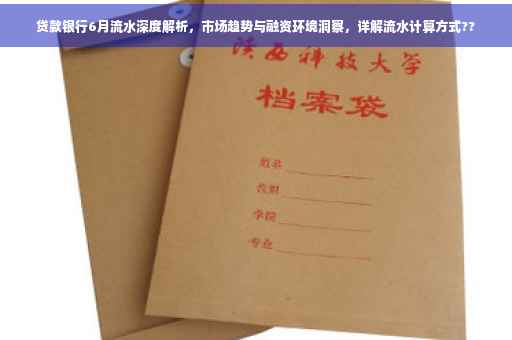 贷款银行6月流水深度解析，市场趋势与融资环境洞察，详解流水计算方式??
陕西科技大学
档案袋
姓名
学院
专业